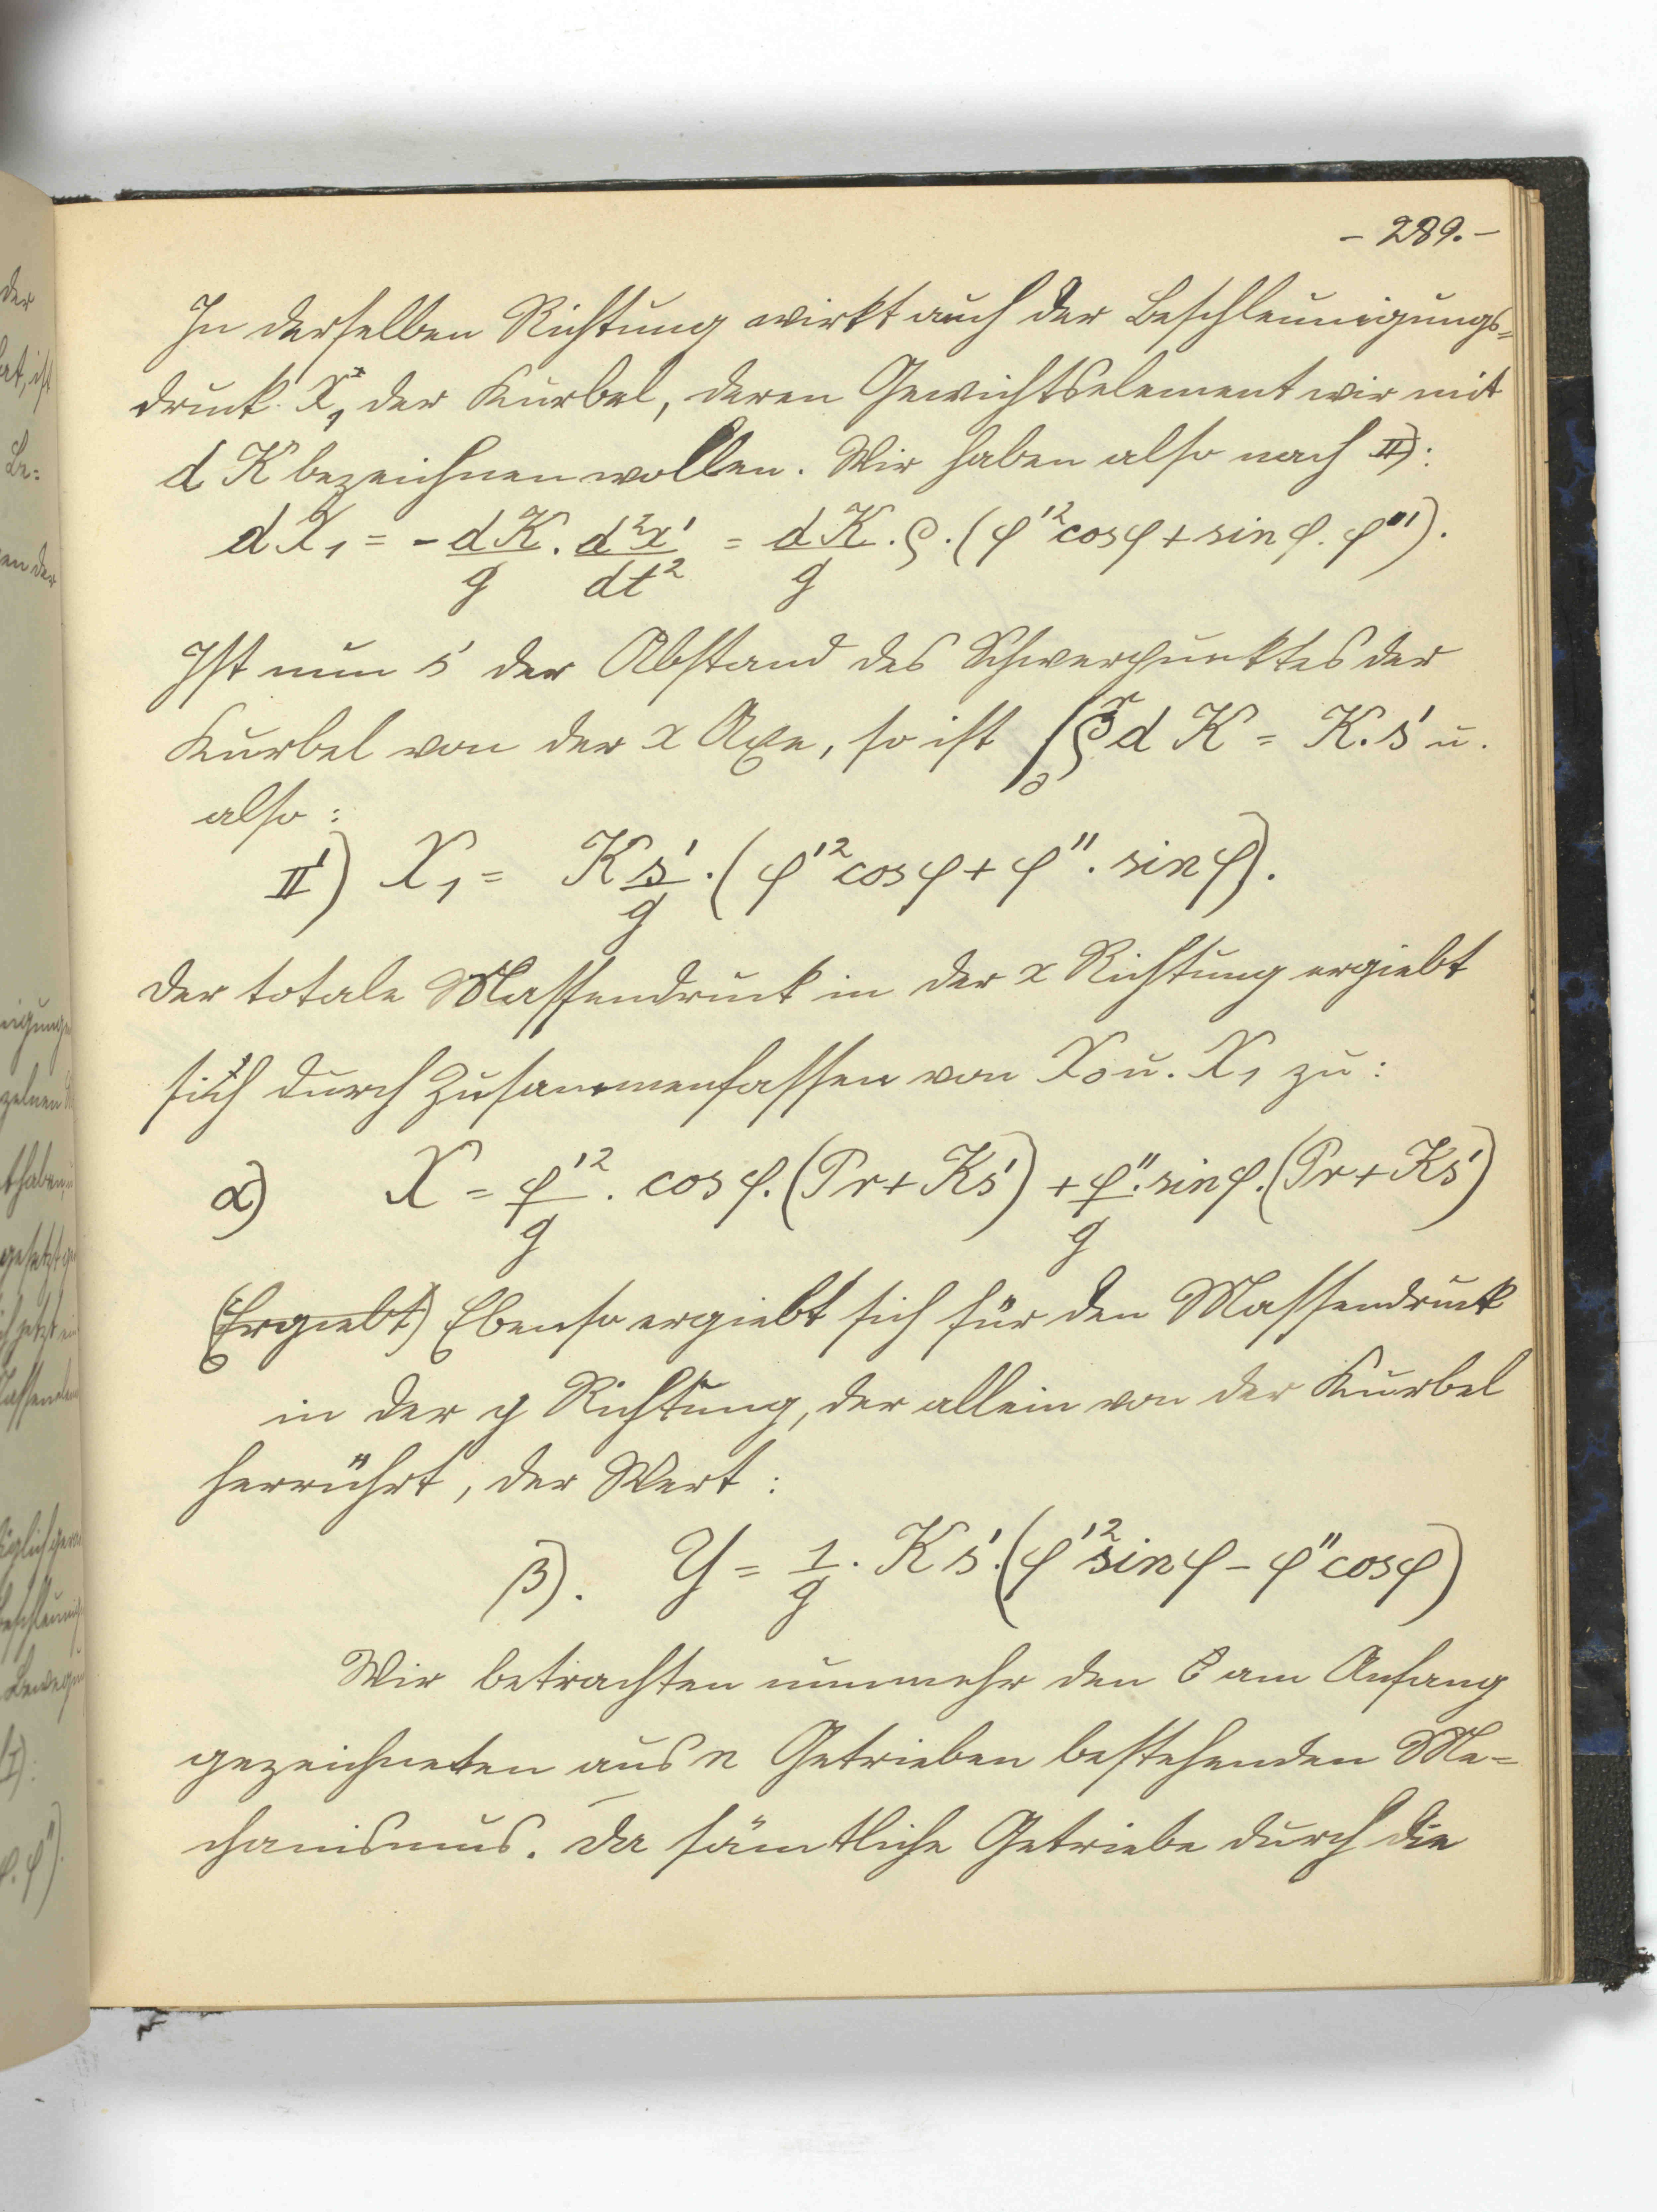 - 289. -
In derselben Richtung wirkt auch der Beschleunigungs=
druck X₁ der Kurbel, deren Gewichtselement wir mit
d K bezeichnen wollen. Wir haben also nach II):
dX₁ = - dK/g · d²x'/dt² = dK/g · ρ · (φ'² cos φ + sin φ · φ'').
Ist nun s' der Abstand des Schwerpunktes der
Kurbel von der x Axe, so ist ∫₀ʳ ρ d K = K. s' u.
also:
II') X₁ = K s'/g · (φ'² cos φ + φ'' · sin φ).
Der totale Massendruck in der x Richtung ergiebt
sich durch Zusammenfassen von X₀ u. X₁ zu:
α) X = φ'²/g · cos φ. (Pr + Ks') + φ''/g · sin φ. (Pr + Ks')
(Ergiebt) Ebenso ergiebt sich für den Massendruck
in der y Richtung, der allein von der Kurbel
herrührt, der Wert:
β). Y = 1/g · K s'. (φ'² sin φ - φ'' cos φ)
Wir betrachten nunmehr den am Anfang
gezeichneten aus n Getrieben bestehenden Me=
chanismus. Da sämtliche Getriebe durch die
der
at, ist
Be=
en der